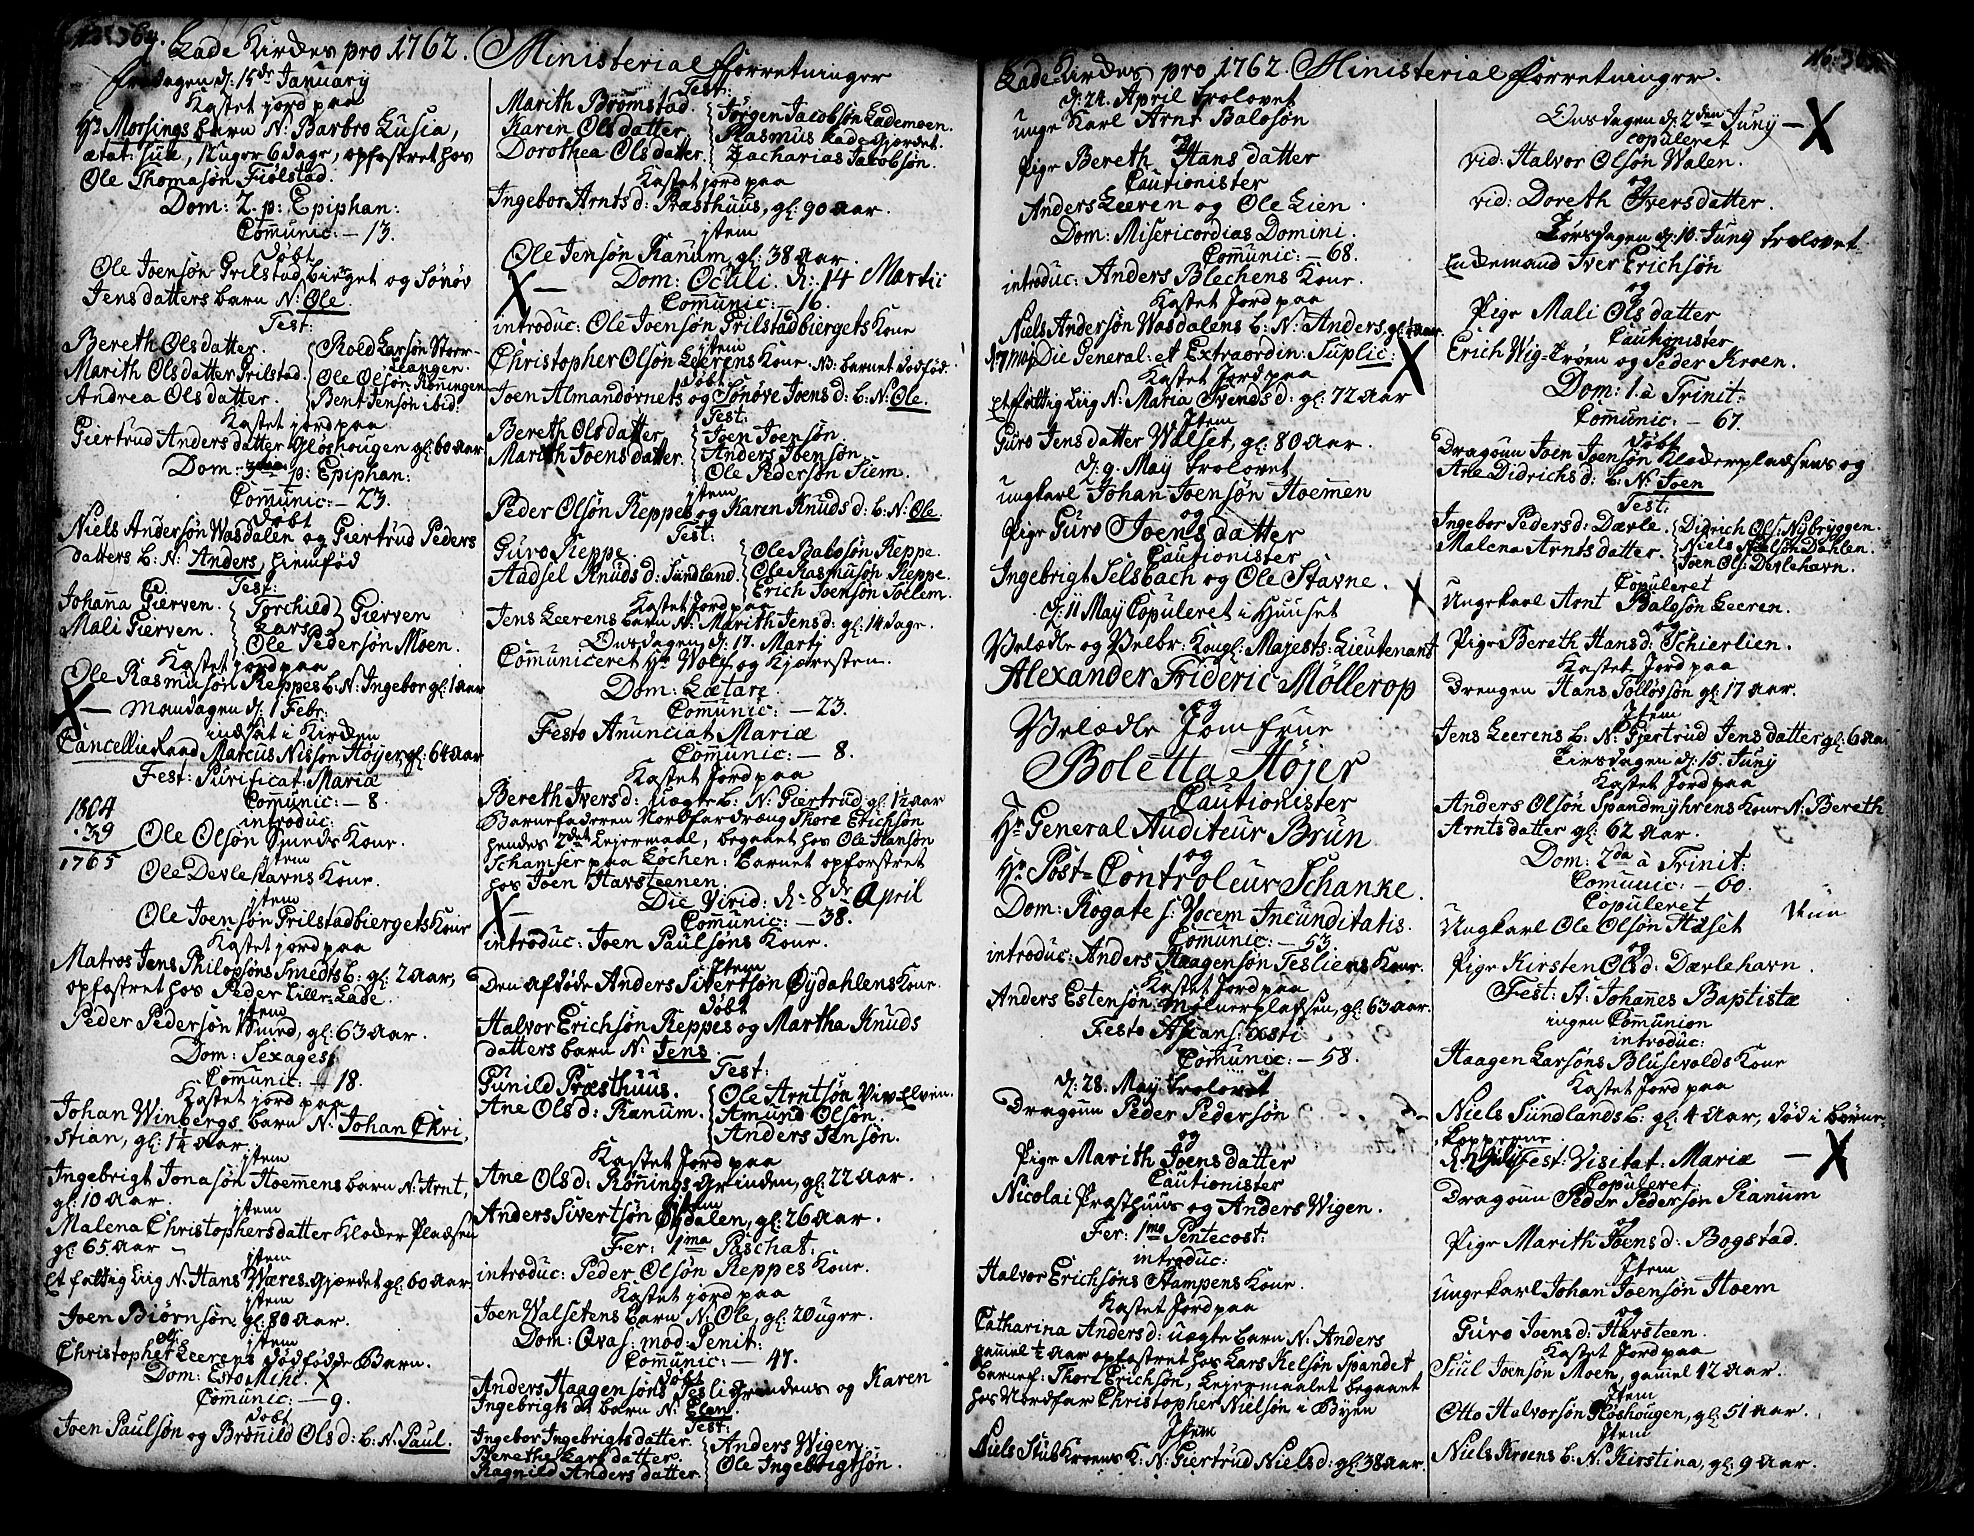 364.
Lade Kirdes pro 1762. Ministerial fforretninger
fredagen d: 15de January
Kastet jord paa
Hr Morsings barn N: Barbro Lusia,
ætat: suæ, 12 uger 6 dage, opfostret hos
Ole Thomasøn Fiolstad.
Dom: 2. p: Epiphan:
Com̄unic: — 13.
Døbt
Ole Joensøn Prilstadbirget og Sønøv
Jens datters barn N: Ole.
Test:
Bereth Olsdatter. Rold Larsøn Storr-
langen.
Marith Olsdatter Prilstad. Ole Olsøn Röningen
Andrea Olsdatter. Bent Jensøn ibid:
Kastet jord paa
Giertrud Andersdatter Gløshougen gl: 60 aar
Dom: 3tia p: Epiphan:
Com̄unic: — 23.
Døbt
Niels Andersøn Wasdalen og Giertrud Peders
datters b: N: Anders, hiemfød
Test:
Johanna Gierven. Torchild Gierven
Mali Gierven. Lars
Ole Pedersøn Moen.
Kastet jord paa
Ole Rasmusøn Reppes b: N: Ingebor gl: 1 aar
X — Mandagen d: 1 Febr.
indsat i Kirden
Cancellieraad Marcus Nissøn Høyer, gl: 64 aar
Fest: Purificat: Mariæ
Com̄unic: — 8.
1804
39
1765
introduc:
Ole Olsøn Smeds Kone.
jtem
Ole Devlehavns Kone.
jtem
Ole Joensøn Prilstadbiergets Kone
Kastet jord paa
Matros Jens Philopsøns Smedts b: gl: 2 aar,
opfostret hos Peder Lille-Lade.
jtem
Peder Pedersøn Smed, gl: 63 aar.
Dom: Sexages:
Com̄unic: — 18.
Kastet jord paa
Johan Winbergs barn N: Johan Chri
stian, gl: 1½ aar.
jtem
Ingebrigt Jonasøn Hoem̄ens barn N: Arnt,
gl: 10 aar.
jtem
Malena Christophersdatter Kloder Pladsen
gl: 65 aar —
jtem
Et fattig Liig N: Hans Wæres-Gjærdet gl: 60 aar
jtem
Joen Biørnsøn gl: 80 aar.
jtem
Christopher Leerens dødfødde Barn.
Dom: Esto Mihi. X
Com̄unic: — 9.
Døbt
Joen Paulsøn og Brønild Olsd: b: N: Paul.
Test:
Marith Brømstad Jørgen Jacobsøn Lademoen.
Karen Olsdatter Rasmus Ladegjordet.
Dorothea Olsdatter. Zacharias Jacobsøn.
Kastet jord paa
Ingebor Arntsd: Præsthuus, gl: 90 aar.
jtem
Ole Jensøn Ranum, gl: 38 aar.
X — Dom: Oculi. d: 14 Martii
Com̄unic: — 16.
introduc: Ole Joensøn Prilstadbiergets Kone
jtem
Christopher Olsøn Leerens Kone. NB: barnet dødfød.
Døbt
Joen Almandørnets og Sønøve Joensd: b: N: Ole.
Test:
Bereth Olsdatter Joen Joensøn
Marith Joensdatter. Anders Joensøn
Ole Pedersøn Siem.
jtem
Peder Olsøn Reppes og Karen Knudsd: b: N: Ole.
Test:
Guro Reppe. Ole Balosøn Reppe.
Aadsel Knudsd: Sundland. Ole Rasmusøn Reppe.
Erich Joensøn Tollem.
Kastet Jord paa
Jens Leerens barn N: Marith Jensd: gl: 14 dage.
Onsdagen d: 17. Marti
Com̄uniceret Hr Wolf og Kjæresten.
Dom: Lætare
Com̄unic: — 23.
Festo Anunciat: Mariæ
Com̄unic: — 8.
Kastet Jord paa
Bereth Iversd: uægte b: N: Giertrud gl: 1½ aar
Barnefaderen Nordfardræng Thore Erichsøn
hendes 2det Lejermaal, begaaet hos Ole Hansøn
Schamfer paa Løchen: barnet opfostret
hos Joen Havsteenen.
X — Die Virid: d: 8de April
Com̄unic: — 38.
introduc: Joen Paulsøns Kone.
Jtem
Den afdøde Anders Sivertsøn Øydahlens Kone.
Døbt
Halvor Erichsøn Reppes og Martha Knuds
datters barn N: Jens
Test:
Gunild Præsthuus. Ole Arntsøn Ved Elven.
Ane Olsd: Ranum. Amund Olsøn.
Anders Jensøn.
Kastet Jord paa
Ane Olsd: Rønnings Grinden, gl: 22 aar.
jtem
Anders Sivertsøn Øydalen, gl: 26 aar.
Fer: 1ma Paschat:
introduc: Peder Olsøn Reppes Kone.
Kastet jord paa
Joen Walsetens barn N: Ole, gl: 20 uger.
Dom: Qvas: mod: Genit:
Com̄unic: — 47.
Døbt
Anders Haagensøns Teslitrindens og Karen
Ingebrigtsd barn N: Elen.
Test:
Ingebor Ingebrigtsdatter. Anders Wigen
Berethe Larsdatter Ole Ingebrigtsøn.
Ragnild Andersdatter.
Lade-Kirdes pro 1762. Ministerial fforretninger.
d: 24. April trolovet
unge Karl Arnt Balosøn
og
Pige Bereth Hansdatter
Cautionister
Anders Leeren og Ole Lien.
Dom: Misericordias Domini.
Com̄unic: — 68.
introduc: Anders Blechens Kone.
Kastet Jord paa
Niels Andersøn Wasdalens b: N: Anders, gl: ¼ aar.
d: 7 Maj Die General: et Extraordin: Suplic: X
Kastet Jord paa
Et fattig Liig N: Maria Svendsd: gl: 72 aar
Jtem
Guro Jensdatter Walset, gl: 80 aar.
d: 9. May trolovet
ungkarl Johan Joensøn Hoem̄en
og
Pige Guro Joensdatter
Cautionister
Ingebrigt Selsbach og Ole Stavne. X
d: 11 May Copuleret i Huuset
Velædle og Velbr: Kongl: Majests: Lieutenant
Alexander Frideric Möllerop
og
Velædle Jomfrue
Boletta Høyer
Cautionister
Hr General Auditeur Brun
og
Hr Post-Controleur Schanke.
Dom: Rogate s: Vocem Jucunditatis.
Com̄unic: — 53.
introduc: Anders Haagensøn Tesliens Kone.
Kastet Jord paa
Anders Estensøn Mølnerpladsen, gl: 63 aar.
Festo Ascens: Xsti
Com̄unic: — 58.
d: 28. May trolovet
Dragoun Peder Pedersøn
og
Pige Marith Joensdatter
Cautionister
Nicolai Præsthuus og Anders Wigen.
Fer: 1ma Pentecost:
introduc:
Halvor Erichsøns Stampens Kone.
Kastet Jord paa
Catharina Andersd: uægte barn N: Anders
gam̄el ½ aar opfostret hos Lars Kelsøn Spandet
Barnef: Thore Erichsøn, Lejermaalet begaaet
hos Nordfar Christopher Nielsøn i Byen
Jtem
Niels Stub Kroens K: N: Giertrud Nielsd: gl: 38 aar.
Onsdagen d: 2den Juny — X
Copuleret
vid: Halvor Olsøn Walen.
og
vid: Doreth Iversdatter.
Torsdagen d: 10. Juny trolovet
Enkemand Iver Erichsøn
og
Pige Mali Olsdatter
Cautionister
Erich Wig-Trøen og Peder Kroen.
Dom: 1. à Trinit:
Com̄unic: — 67.
Døbt
Dragoun Joen Joensøn Kloderpladsens og
Ane Didrichsd: b: N: Joen
Test:
Ingebor Pedersd: Dævle. Didrich Ols: Nybryggen.
Malena Arntsdatter. Niels Nielsøn Dahlen.
Joen Ols: Devlehavn.
Copuleret
Ungekarl Arnt Balosøn Leeren.
og
Pige Bereth Hansd: Schierlien.
Kastet Jord paa
Drengen Hans Tolløfsøn gl: 17 aar.
Jtem
Jens Leerens b: N: Gjertrud Jensdatter gl: 6 aar
Tirsdagen d: 15. Juny
Kastet Jord paa
Anders Olsøn Spandmyhrens Kone N: Bereth
Arntsdatter gl: 62 aar.
Dom: 2da à Trinit:
Com̄unic: — 60.
Copuleret
Ungkarl Ole Olsøn Halset
og
Pige Kirsten Olsd: Dævlehavn.
Fest: St: Johannes Baptistæ
ingen Com̄union
introduc:
Haagen Larsøns Blusevolds Kone
Kastet Jord paa
Niels Sundlands b: gl: 4 aar, død i børne-
kopperne.
d: 2 July Fest: Visitat: Mariæ — X
Copuleret
Dragoun Peder Pedersøn Ranum
og
Pige Marith Joensd: Bogstad.
Jtem
ungekarl Johan Joensøn Hoem
og
Guro Joensd: Havsteen.
Kastet Jord paa
Siul Joensøn Moen, gam̄el 42 aar.
Jtem
Otto Halvorsøn Gløshougen, gl: 51 aar.
Jtem
Niels Kroens b: N: Kirstina, gl: 9 aar.